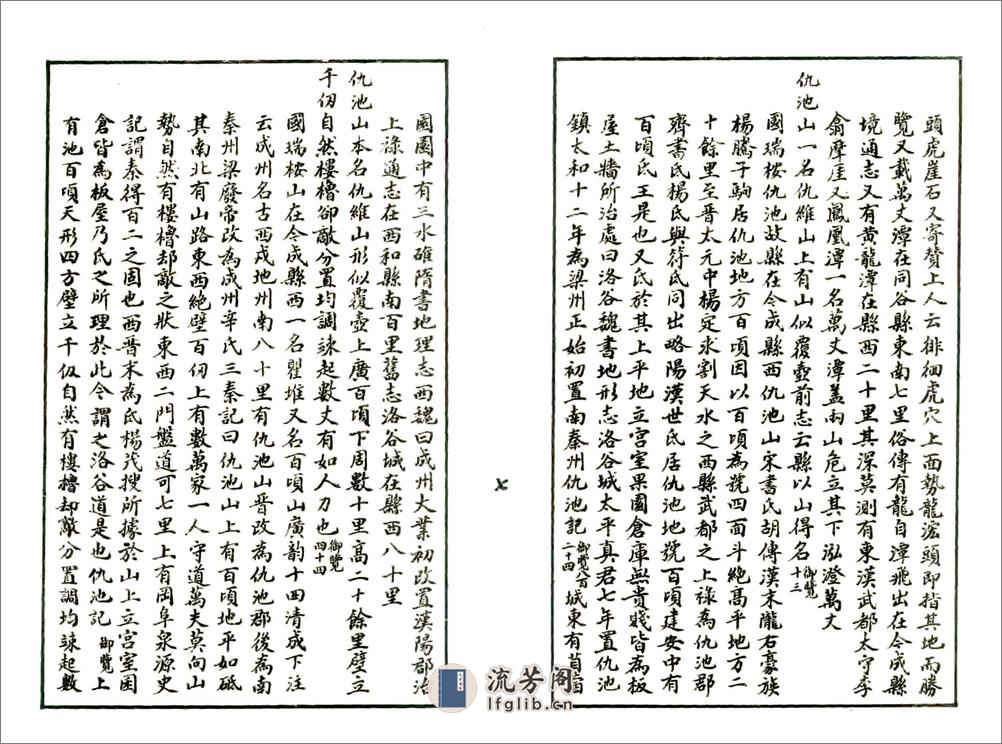 頭虎崖石又寄贊上人云徘徊虎穴上面勢龍泓頭即指其地而勝
覽又載萬丈潭在同谷縣東南七里俗傳有龍自潭飛出在今成縣
境通志又有黃龍潭在縣西二十里其深莫測有東漢武都太守李
翕摩崖又鳳凰潭一名萬丈潭蓋兩山危立其下泓澄萬丈
仇池山一名仇維山上有山似覆壺前志云縣以山得名御覽十三
國瑞桉仇池故縣在今成縣西仇池山宋書氐胡傳漢末隴右豪族
楊騰子駒居仇池地方百頃因以百頃為號四面斗絕高平地方二
十餘里至晉太元中楊定求割天水之西縣武都之上祿為仇池郡
齊書氐楊氏與苻氐同出略陽漢世氐居仇池地號百頃建安中有
百頃氐王是也又氐於其上平地立宮室果園倉庫無貴賤皆為板
屋土牆所治處曰洛谷魏書地形志洛谷城太平真君七年置仇池
鎮太和十二年為梁州正始初置南秦州仇池記御覽八百二十四城東有苜蓿
園園中有三水碓隋書地理志西魏曰成州大業初改置漢陽郡治
上祿通志在西和縣南百里舊志洛谷城在縣西八十里
仇池山本名仇維山形似覆壺上廣百頃下周數十里高二十餘里壁立
千仞自然樓櫓卻敵分置均調竦起數丈有如人刀也御覽四十四
國瑞桉山在今成縣西一名瞿堆又名百頃山廣韵十四清成下注
云成州名古西戎地州南八十里有仇池山晉改為仇池郡後為南
秦州梁廢帝改為成州辛氏三秦記曰仇池山上有百頃地平如砥
其南北有山路東西絕壁百仞上有數萬家一人守道萬夫莫向山
勢自然有樓櫓却敵之狀東西二門盤道可七里上有岡阜泉源史
記謂秦得百二之固也西晉末為氐楊茂搜所據於山上立宮室囷
倉皆為板屋乃氐之所理於此今謂之洛谷道是也仇池記御覽上
有池百頃天形四方壁立千仭自然有樓櫓却敵分置調均竦起數
流芳阁
lfglib.cn